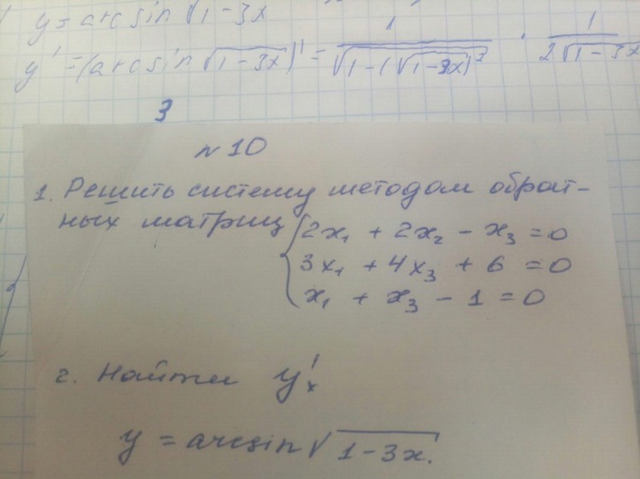 y = arcsin √1-3x
y' = (arcsin √1-3x)' = 1/√1-(√1-3x)² · 1/2√1-3x
3
№10
1. Решить систему методом обрат-
ных матриц { 2x₁ + 2x₂ - x₃ = 0
3x₁ + 4x₃ + 6 = 0
x₁ + x₃ - 1 = 0
2. Найти y'ₓ
y = arcsin √1-3x.